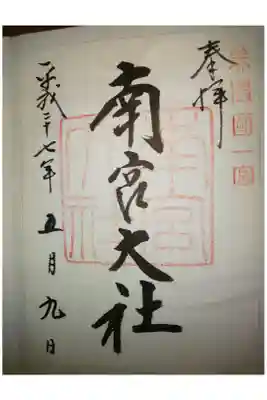 美濃國一宮
奉拝
南宮大社
平成二十七年五月九日